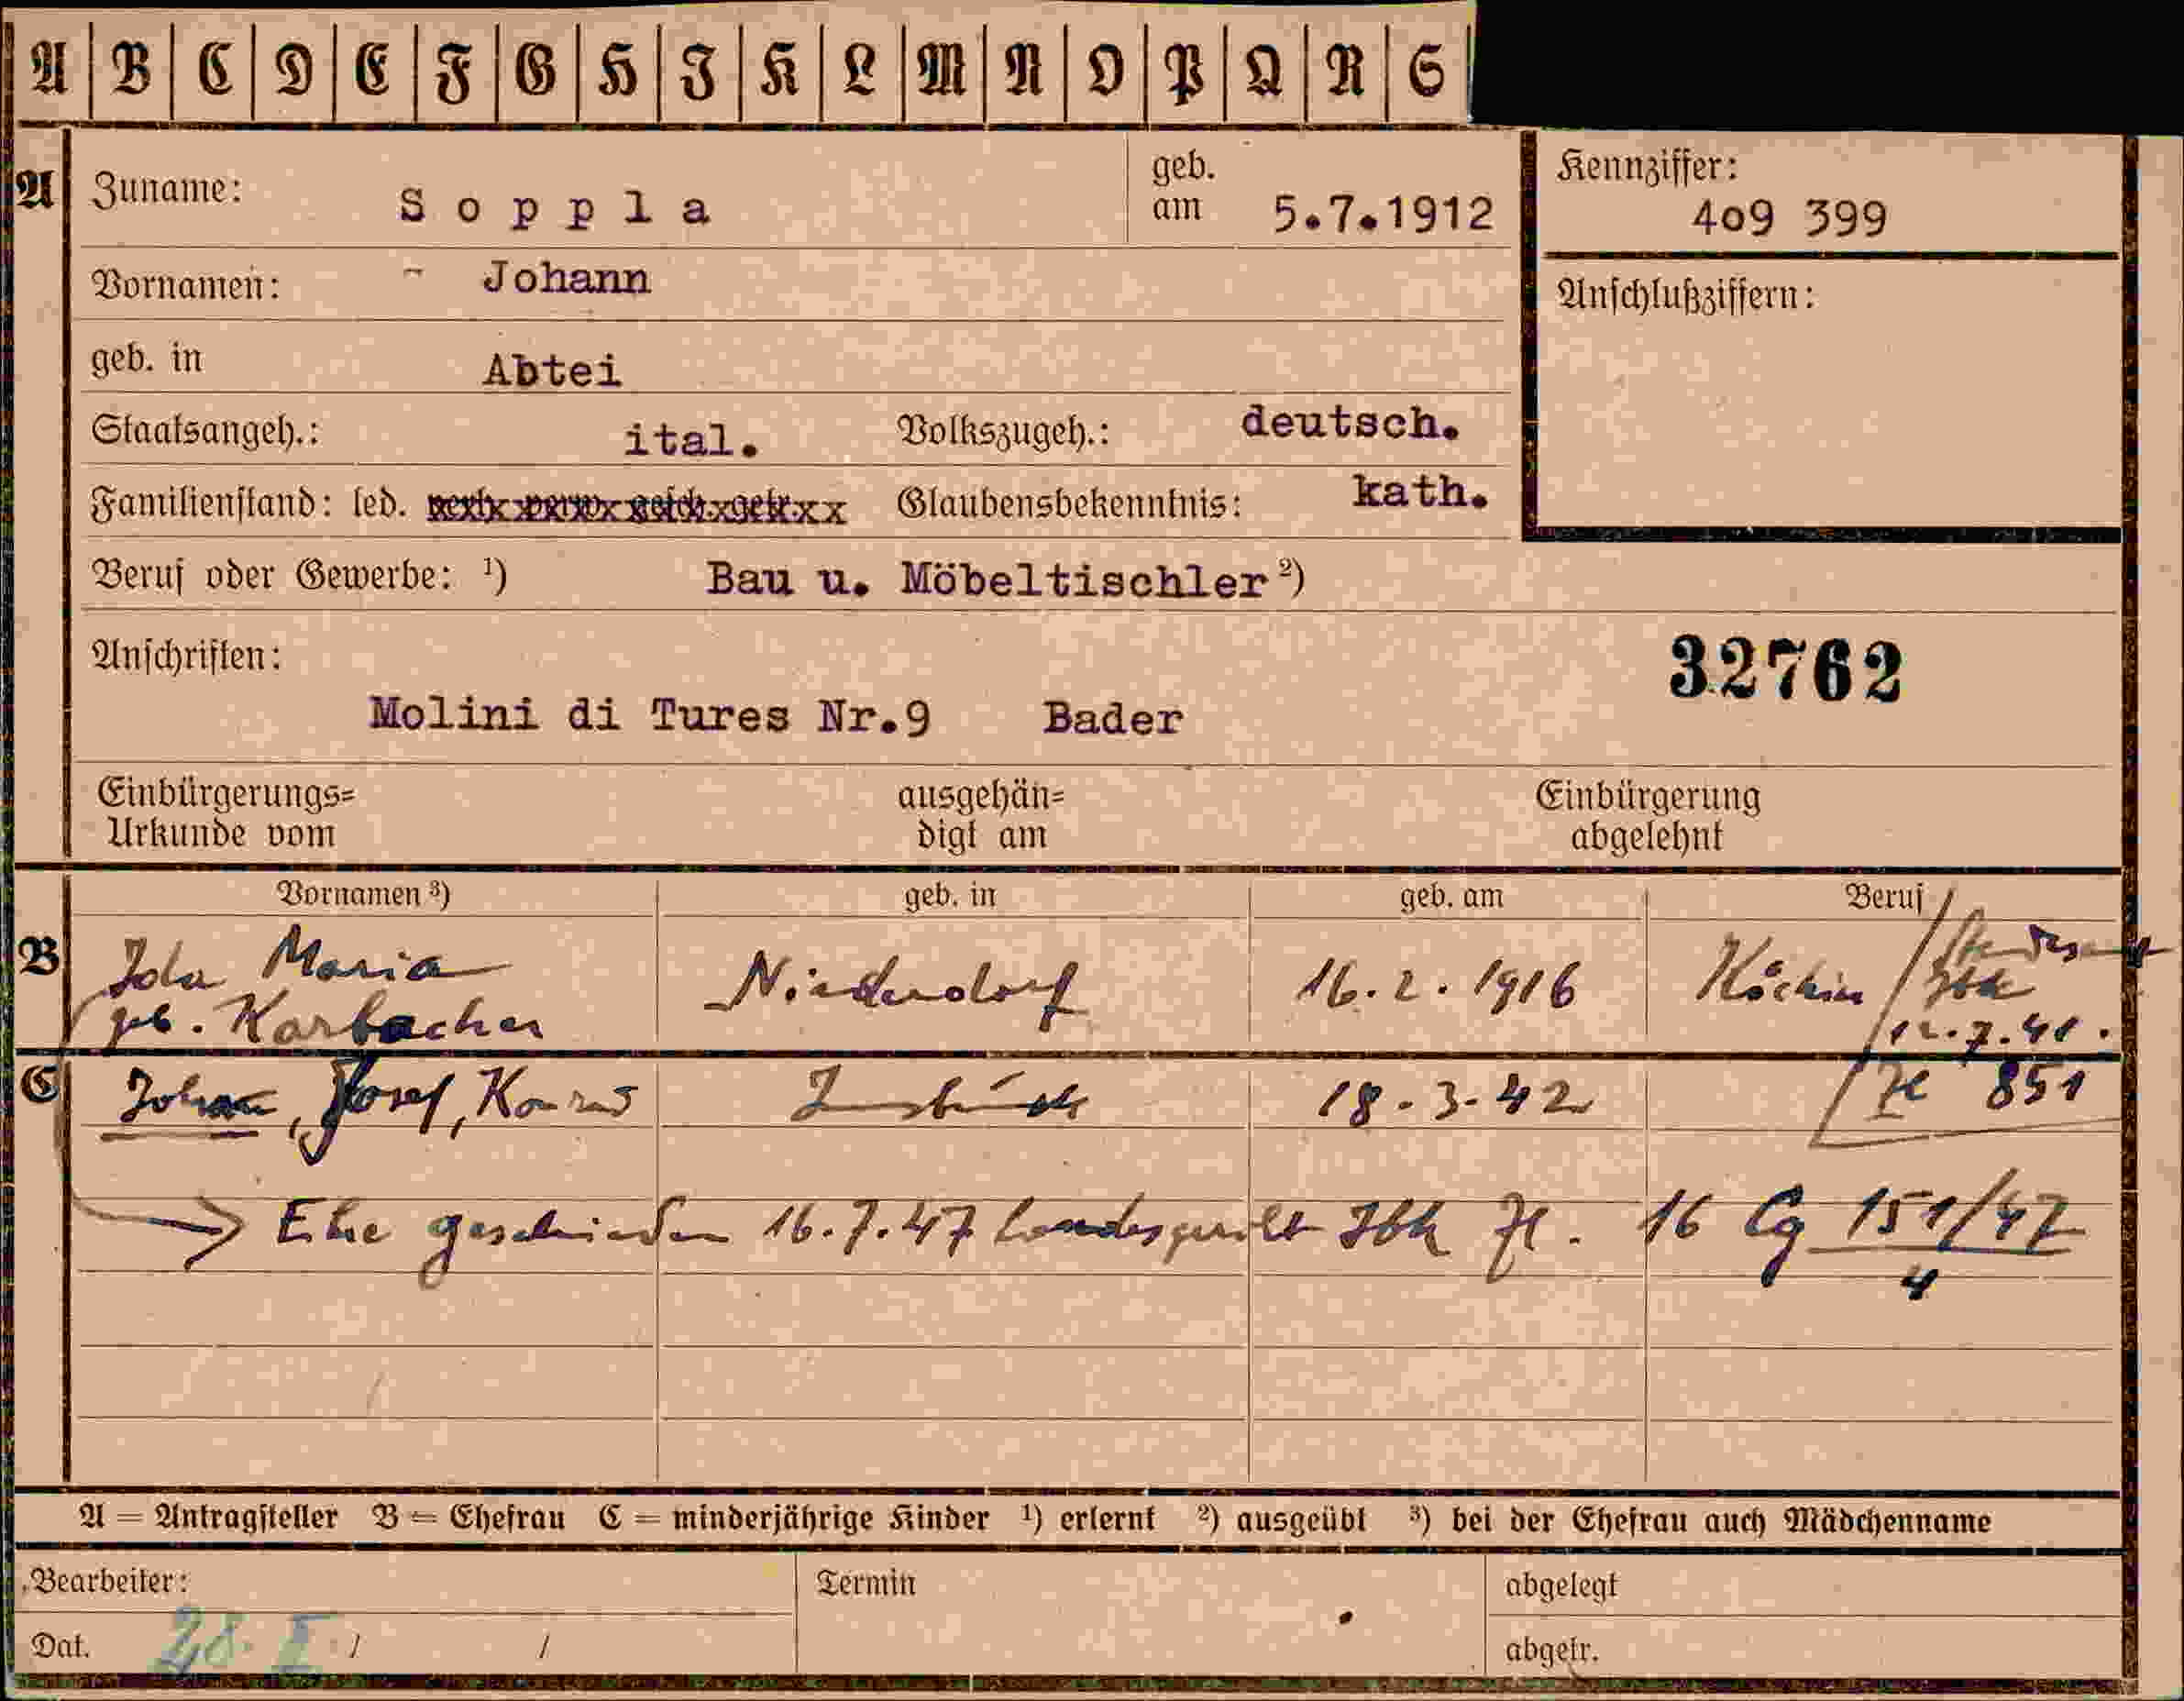 A B C D E F G H I K L M N O P Q R S
A Zuname: Soppla geb. am 5.7.1912 Kennziffer: 409 399
Vornamen: Johann Anschlußziffern:
geb. in Abtei
Staatsangeh.: ital. Volkszugeh.: deutsch.
Familienstand: led. verh. verw. gesch. getr. Glaubensbekenntnis: kath.
Beruf oder Gewerbe: ¹) Bau u. Möbeltischler ²)
Anschriften: 32762
Molini di Tures Nr.9 Bader
Einbürgerungs= ausgehän= Einbürgerung
Urkunde vom digt am abgelehnt
Vornamen ³) geb. in geb. am Beruf
B Ida Maria Niederdorf 16.2.1916 Köchin Standesamt Ibk
geb. Karbacher 12.7.41.
C Johann, Josef, Konrad Innsbruck 18.3.42 Zl 851
Ehe geschieden 16.7.47 Landesgericht Ibk Zl. 16 Cg 151/47
4
A = Antragsteller B = Ehefrau C = minderjährige Kinder ¹) erlernt ²) ausgeübt ³) bei der Ehefrau auch Mädchenname
Bearbeiter: Termin abgelegt
Dat. 28. I / / abgetr.